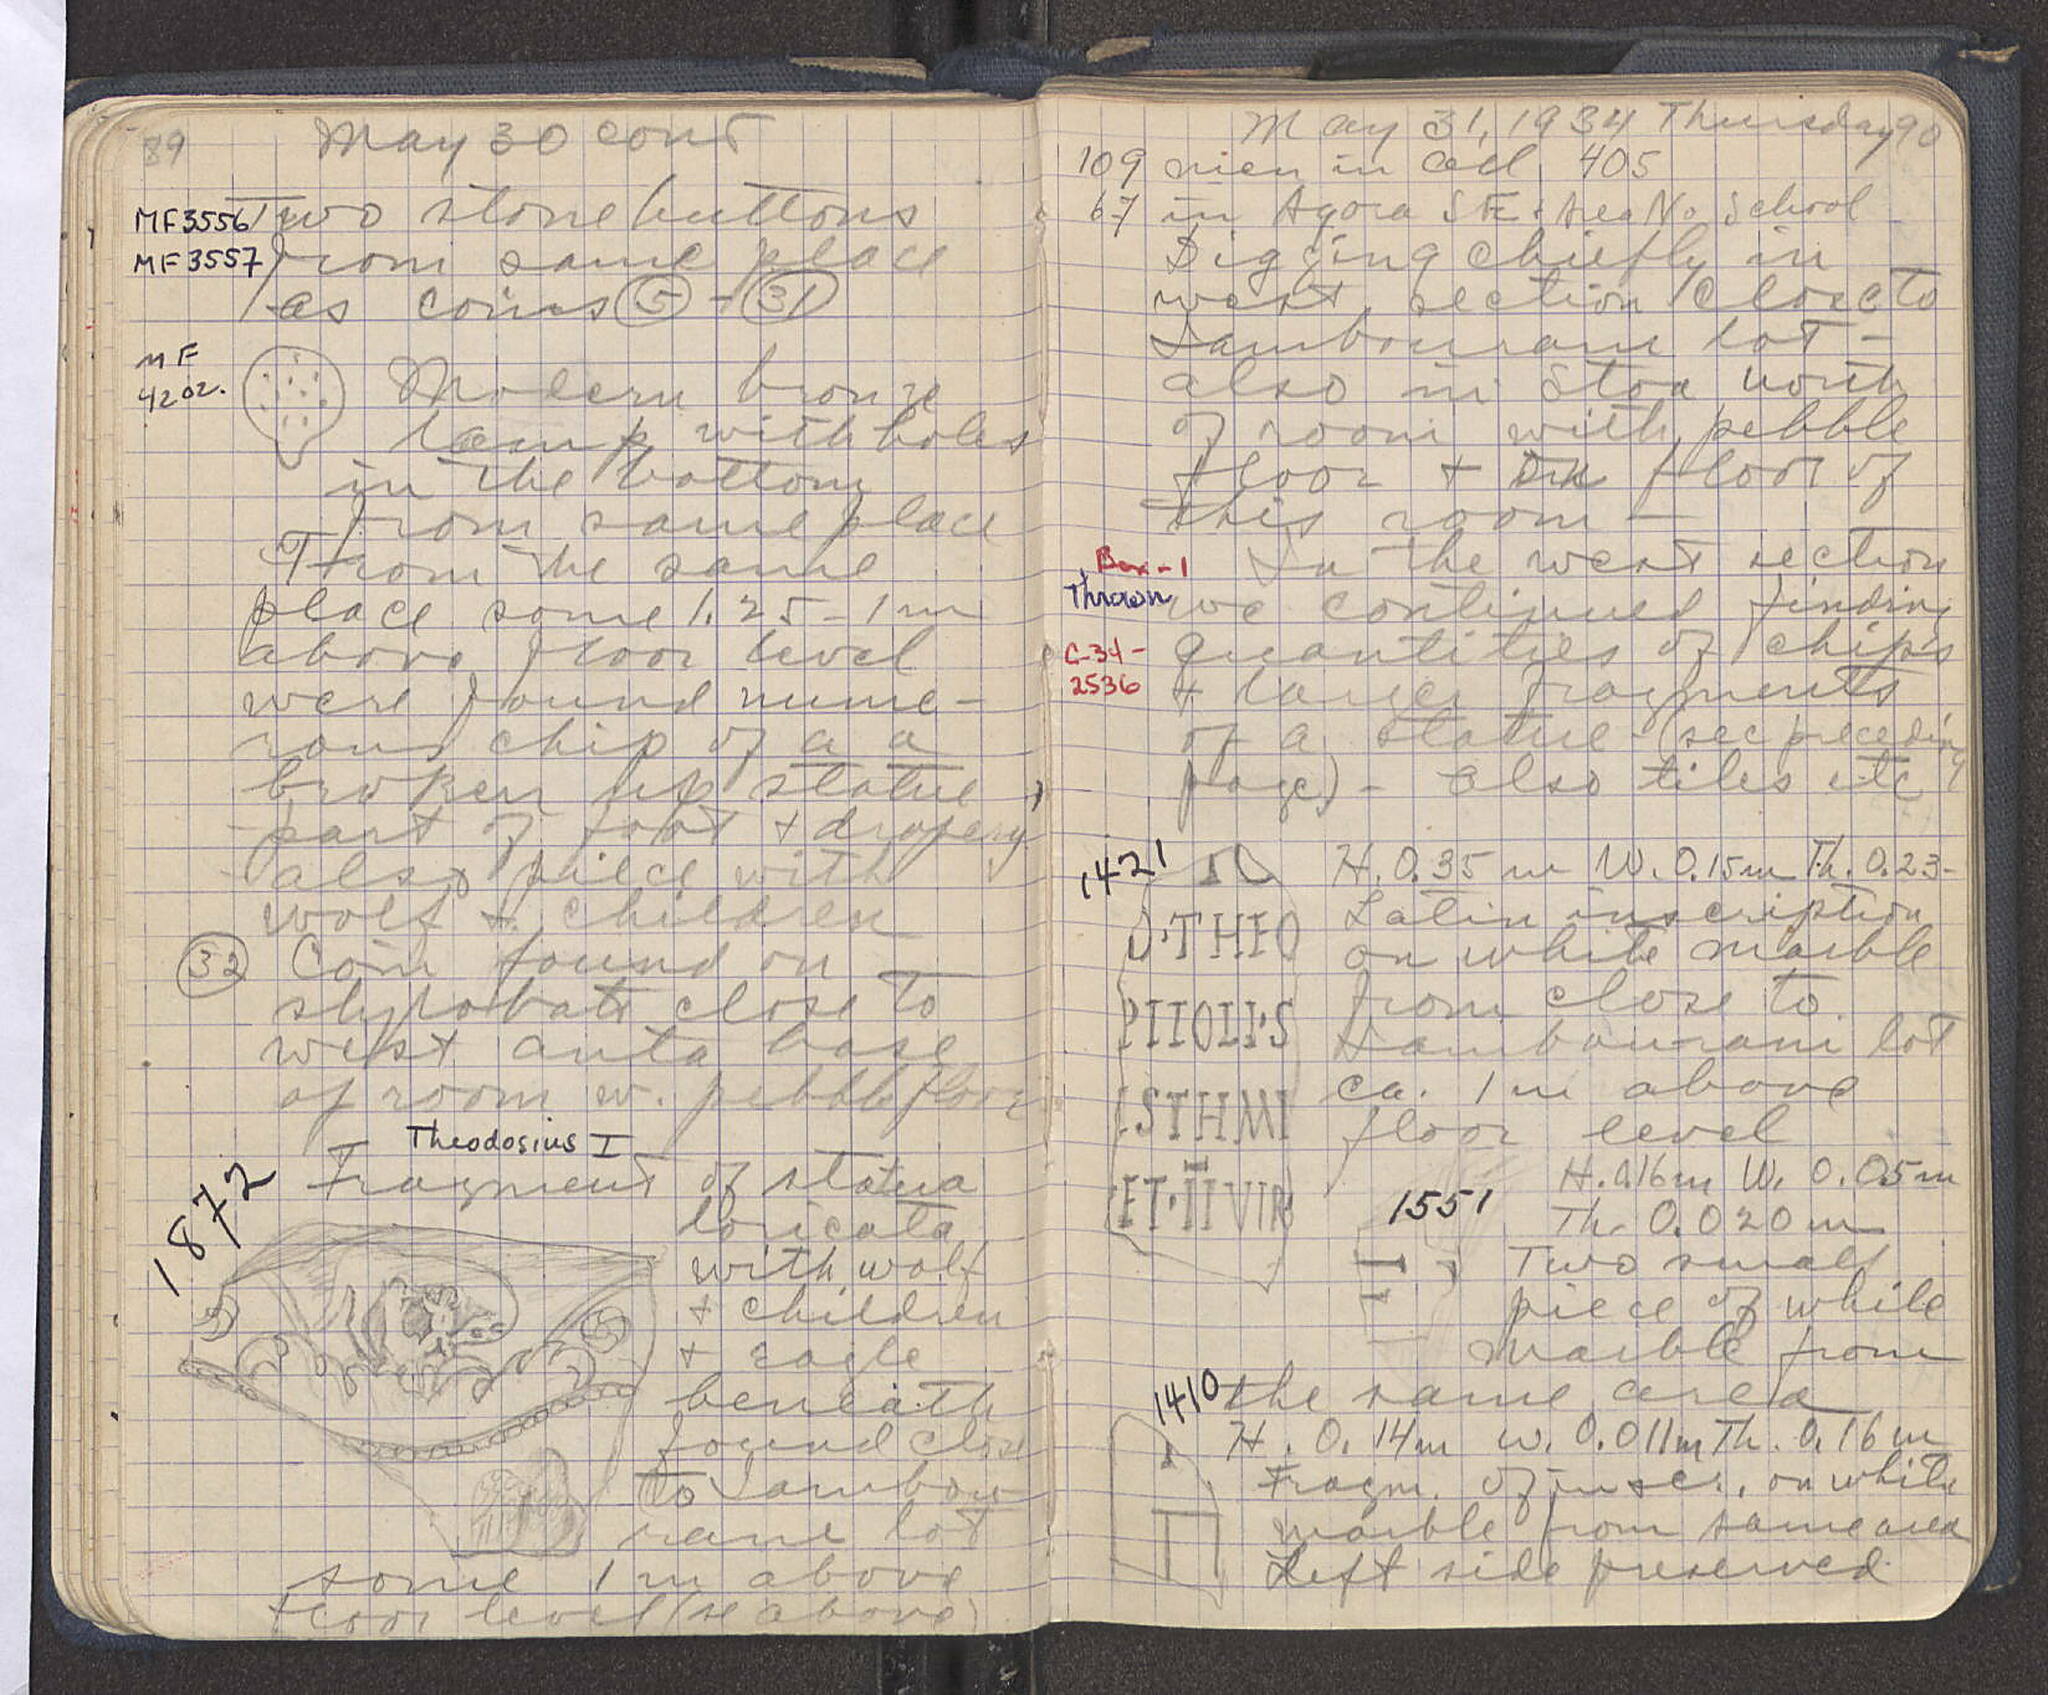 89
May 30 cont
MF3556 Two stone buttons
MF3557 from same place
as coins 5 - 31
MF
4202.
Modern bronze
lamp with holes
in the bottom
from same place
From the same
place some 1.25 - 1 m
above floor level
were found nume-
rous chip of a a
broken up statue
- part of foot + drapery
- also piece with
wolf + children
32 Coin found on
stylobate close to
west anta base
of room w. pebble floor
Theodosius I
1872
Fragment of statua
loricata
with wolf
+ children
+ eagle
beneath
found close
to Lambou-
rani lot
some 1 m above
floor level (se above)
May 31, 1934 Thursday 90
109 men in all 405
67 in Agora SE + Area No School
Digging chiefly in
west section close to
Lambourani lot -
also in Stoa north
of room with pebble
floor + on floor of
this room -
Box-1
Thrown
In the west section
we continued finding
C-34-
2536
quantities of chips
+ larger fragments
of a statue - (see preceding
page) - also tiles etc
1421
H. 0.35 m W. 0.15m Th. 0.23-
Latin inscription
on white marble
from close to
Lambourani lot
ca. 1 m above
floor level
O·THEO
PIIOLI·S
ISTHMI
ET·II VIR
1551
H. 0.16m W. 0.05m
Th. 0.020m
Two small
piece of white
marble from
the same area
1410
H. 0.14m W. 0.011m Th. 0.16 m
Fragm. of inscr. on white
marble from same area
Left side preserved